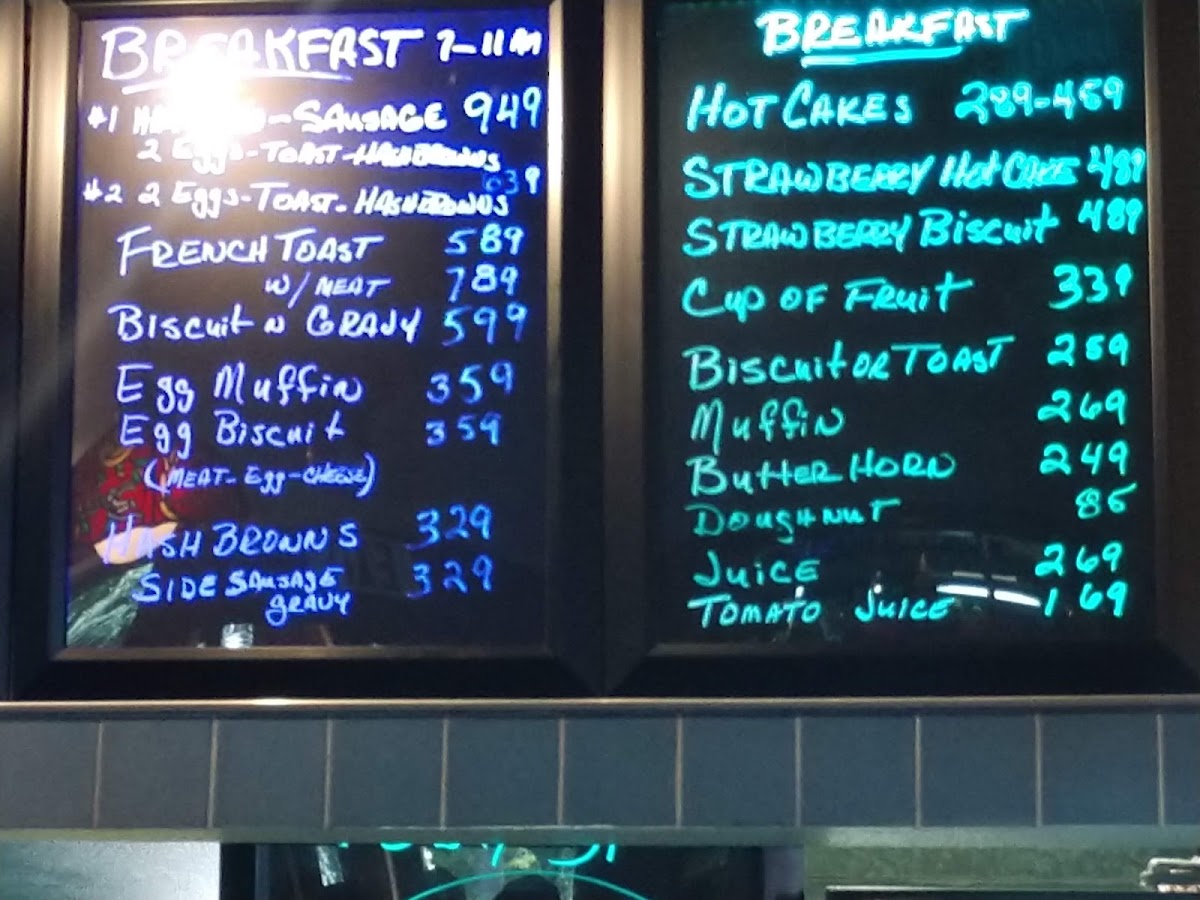 BREAKFAST 7-11 AM
#1 - SAUSAGE 949
2 Eggs-TOAST-HASHBROWNS
639
#2 2 Eggs-TOAST-HASHBROWNS
FRENCH TOAST 589
w/ MEAT 789
BISCUIT N GRAVY 599
Egg Muffin 359
Egg Biscuit 359
(MEAT-Egg-CHEESE)
HASH BROWNS 329
SIDE SAUSAGE 329
gravy
BREAKFAST
HOT CAKES 289-489
STRAWBERRY HOT CAKE 489
STRAWBERRY Biscuit 489
Cup OF Fruit 339
Biscuit OR TOAST 289
Muffin 269
Butter HORN 249
Doughnut 85
Juice 269
TOMATO Juice 1 69